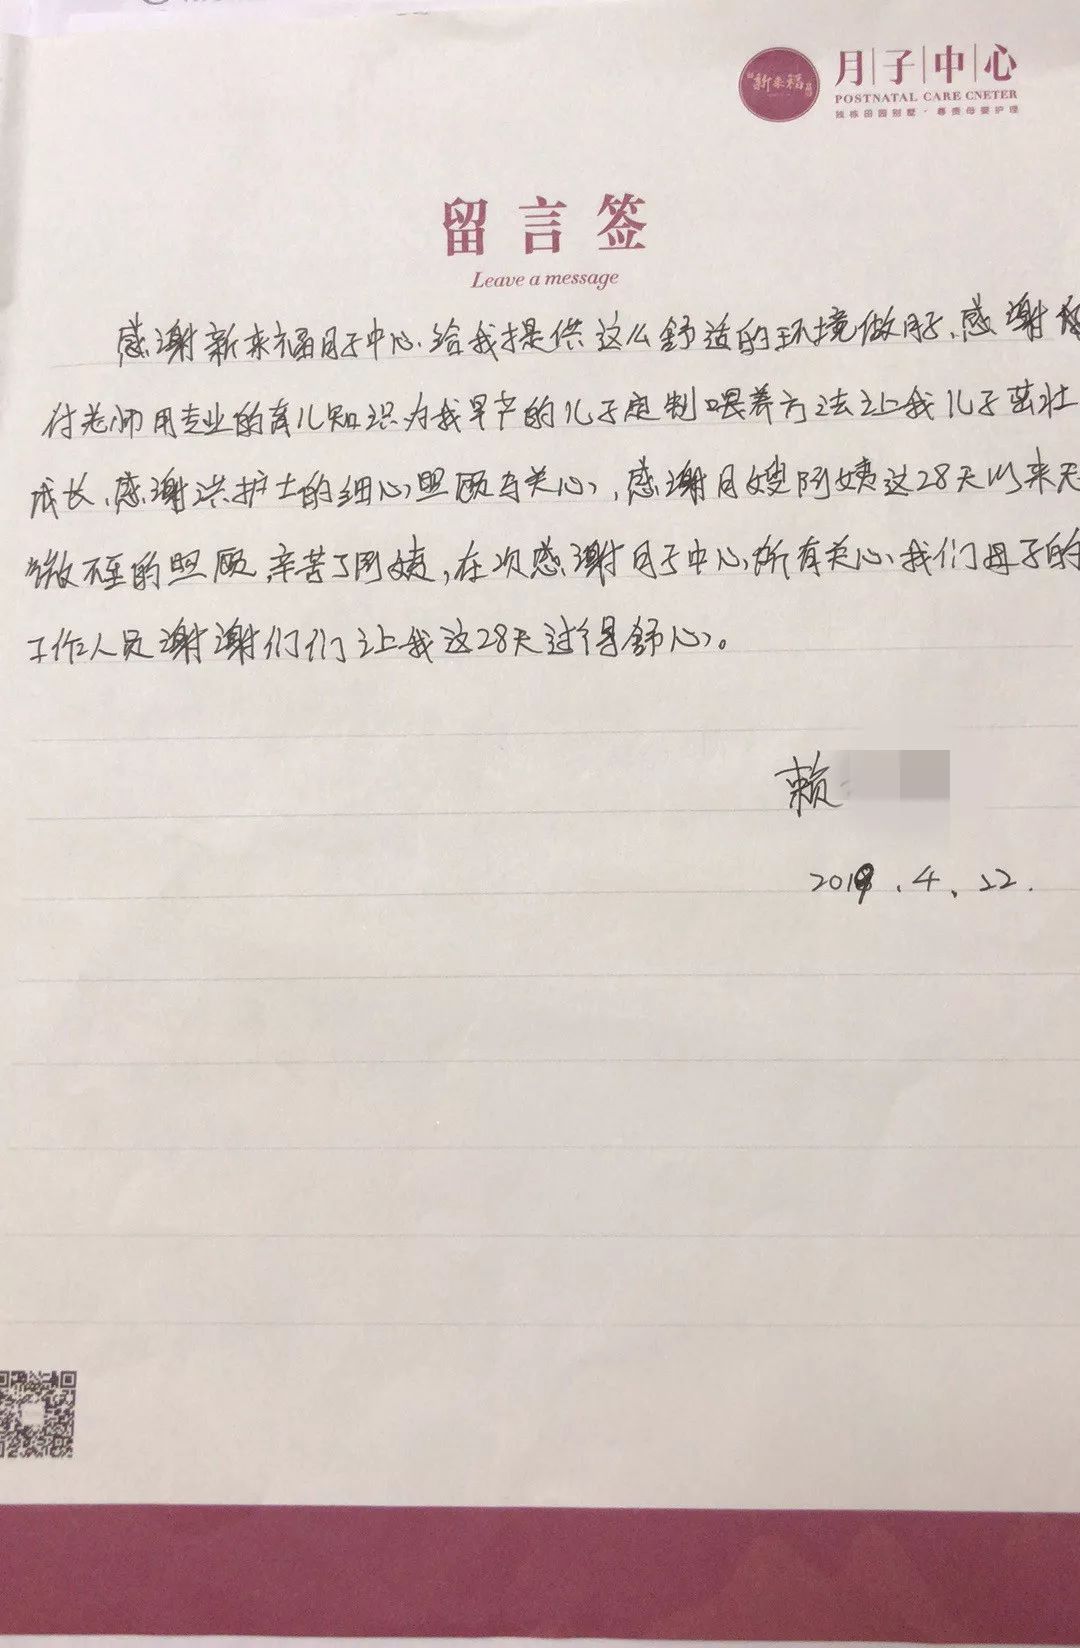 新来福
月子中心
POSTNATAL CARE CNETER
独栋田园别墅·尊贵母婴护理
留言签
Leave a message
感谢新来福月子中心.给我提供这么舒适的环境做月子.感谢
付老师用专业的育儿知识为我早产的儿子定制喂养方法让我儿子茁壮
成长.感谢洪护士的细心照顾与关心,感谢月嫂阿姨这28天以来无
微不至的照顾.辛苦了阿姨,在次感谢月子中心所有关心我们母子的
工作人员谢谢们们让我这28天过得舒心。
赖
2019.4.22.